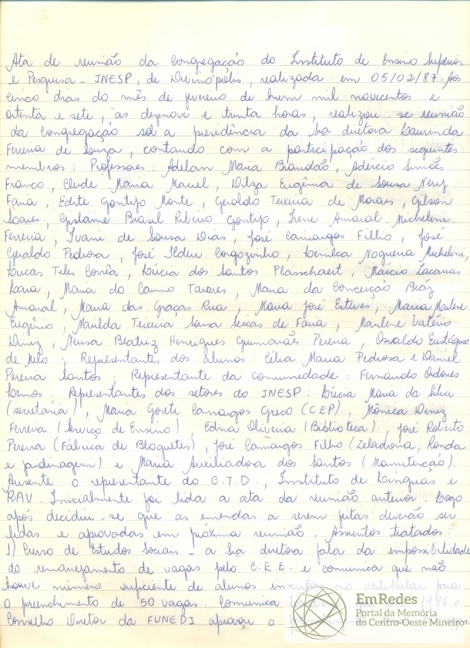 Ata de reunião da Congregação do Instituto de Ensino Superior
e Pesquisa - INESP, de Divinópolis, realizada em 05/02/87. Aos
cinco dias do mês de fevereiro de hum mil novecentos e
oitenta e sete, às dezenove e trinta horas, realizou-se reunião
da congregação sob a presidência da Sra diretora Laurinda
Ferreira de Souza, contando com a participação dos seguintes
membros: Professores: Adelan Maria Brandão, Adércio Simão
Franco, Cleide Maria Maciel, Dilza Eugênia de Sousa Nery
Faria, Edite Gontijo Monte, Geraldo Teixeira de Moraes, Gilson
Soares, Gislaine Brasil Ribeiro Gontijo, Irene Amaral Michelini
Ferreira, Ivani de Sousa Dias, José Camargos Filho, José
Geraldo Pedrosa, José Ilden Nogueira Michelini,
Lucas Teles Corrêa, Lúcia dos Santos Plasschaert, Márcio Zacarias
Lara, Maria do Carmo Tavares, Maria da Conceição Braz
Amaral, Maria das Graças Rua, Maria José Esteves, Maria Marlene
Eugênio, Marilda Teixeira de Faria, Marlene Valério
Diniz, Neusa Beatriz Henriques Guimarães Pereira, Osvaldo Eustáquio
de Melo; Representantes dos alunos: Célia Maria Pedrosa e Daniel
Pereira Santos. Representante da comunidade: Fernando
Lemos; Representantes dos setores do INESP: Lúcia Maria da Silva
(secretaria), Maria Gorete Camargos Greco (CEP), Mônica Diniz
Ferreira (Serviço de Ensino), Edna Oliveira (Biblioteca), José Roberto
Pereira (Fábrica de Bloquetes), José Camargos Filho (Zeladoria, Ronda
e jardinagem) e Maria Auxiliadora dos Santos (Manutenção).
Ausente o representante do C.T.D., Instituto de Línguas e
RAV. Inicialmente foi lida a ata da reunião anterior. Logo
após decidiu-se que as emendas a serem feitas deverão ser
lidas e aprovadas em próxima reunião. Assuntos tratados:
1) Curso de Estudos Sociais - a Sra diretora fala da impossibilidade
do remanejamento de vagas pelo C.E.E. e comunica que não
houve número suficiente de alunos no vestibular para
o preenchimento de 50 vagas. Comunica
Conselho Diretor da FUNEDI aprovou o
EmRedes
Portal da Memória
do Centro-Oeste Mineiro